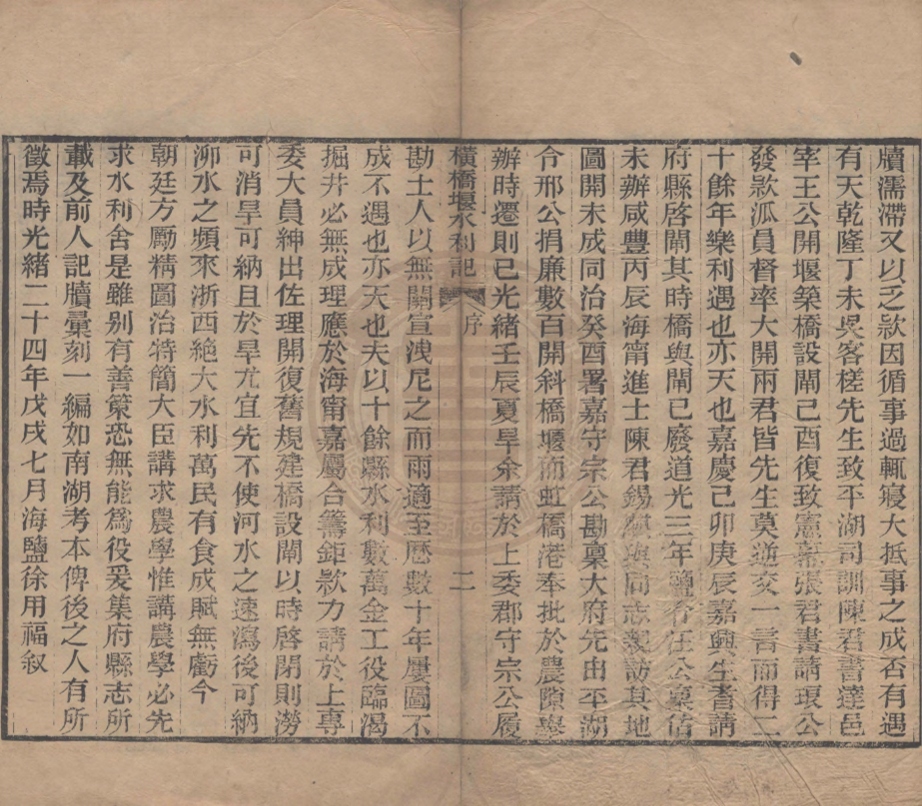 牘濡滯又以乏款因循事過輒寢大抵事之成否有遇
有天乾隆丁未吳客槎先生致平湖司訓陳君書達邑
宰王公開堰築橋設閘己酉復致憲幕張君書請琅公
發款派員督率大開兩君皆先生莫逆交一言而得二
十餘年樂利遇也亦天也嘉慶己卯庚辰嘉興生耆請
府縣啓閘其時橋與閘已廢道光三年鹽 汪公稟估
未辦咸豐丙辰海甯進士陳君錫 與同志親訪其地
圖開未成同治癸酉署嘉守宗公勘稟大府先由平湖
令邢公捐廉數百開斜橋堰而虹橋港奉批於農隙舉
辦時遷則已光緒壬辰夏旱余請於上委郡守宗公履
橫橋堰水利記 序 二
勘士人以無關宣洩尼之而雨適至歷數十年屢圖不
成不遇也亦天也夫以十餘縣水利數萬金工役臨渴
掘井必無成理應於海甯嘉屬合籌鉅款力請於上專
委大員紳出佐理開復舊規建橋設閘以時啓閉則澇
可消旱可納且於旱尤宜先不使河水之速瀉後可納
泖水之頻來浙西絶大水利萬民有食成賦無虧今
朝廷方勵精圖治特簡大臣講求農學惟講農學必先
求水利舍是雖别有善策恐無能爲役爰集府縣志所
載及前人記牘彙刻一編如南湖考本俾後之人有所
徵焉時光緒二十四年戊戌七月海鹽徐用福叙